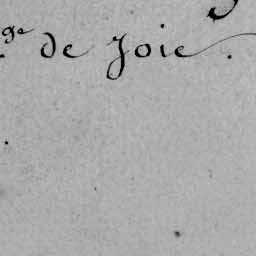 ge de Joie.